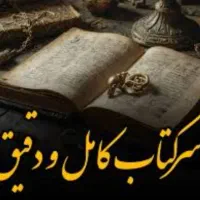 سرکتاب کامل و دقیق